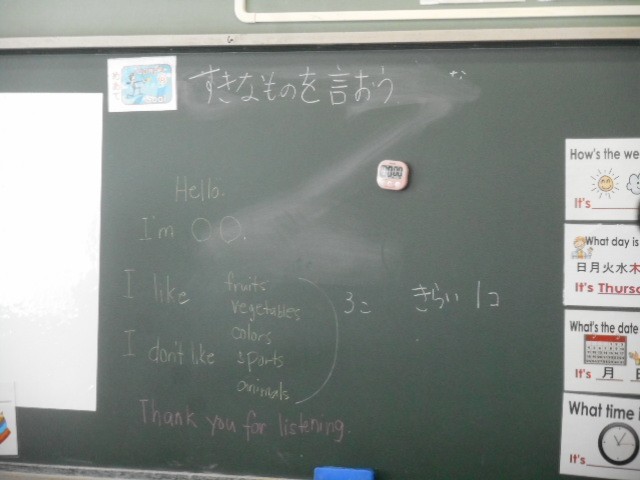 すきなものを言おう
Hello.
I'm ○○.
I like
I don't like
fruits
vegetables
colors
sports
animals
3こ
きらい 1コ
Thank you for listening.
How's the we
It's
What day is
日月火水木
It's Thurs
What's the date
It's 月 日
What time i
It's